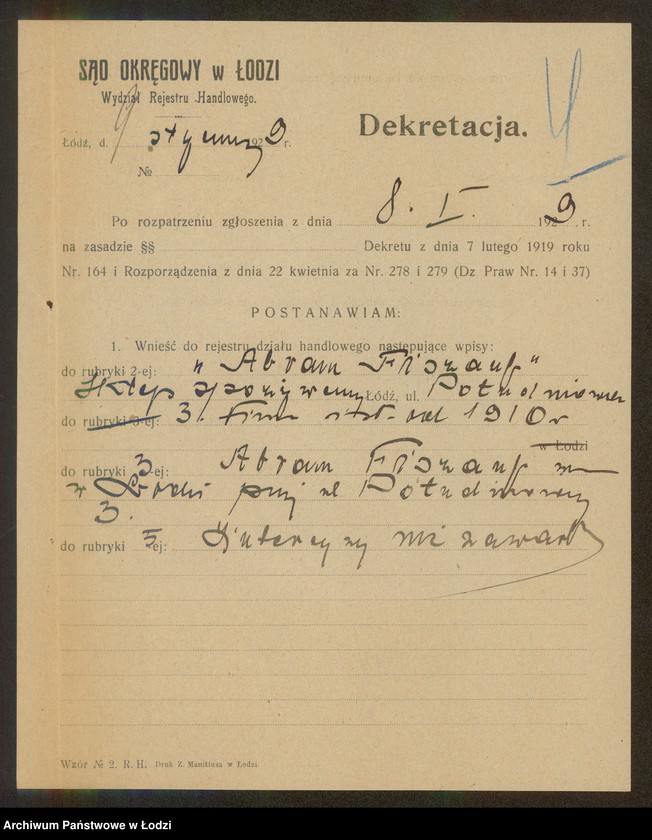 SĄD OKRĘGOWY w ŁODZI
Wydział Rejestru Handlowego.
Dekretacja.
Łódź, d. 9 stycznia 1929 r.
№
Po rozpatrzeniu zgłoszenia z dnia 8. I. 1929 r.
na zasadzie §§ Dekretu z dnia 7 lutego 1919 roku
Nr. 164 i Rozporządzenia z dnia 22 kwietnia za Nr. 278 i 279 (Dz Praw Nr. 14 i 37)
POSTANAWIAM:
1. Wnieść do rejestru działu handlowego następujące wpisy:
do rubryki 2-ej: „Abram Fiszauf"
Sklep spożywczy Łódź, ul. Południowa
do rubryki 3-ej: 3. Firma istn. od 1910 r
w Łodzi
do rubryki 3-ej: Abram Fiszauf zam
w Łodzi przy ul Południowej
3.
do rubryki 5-ej: Intercyzy nie zawarł
Wzór № 2. R. H. Druk Z. Manitiusa w Łodzi.
Archiwum Państwowe w Łodzi